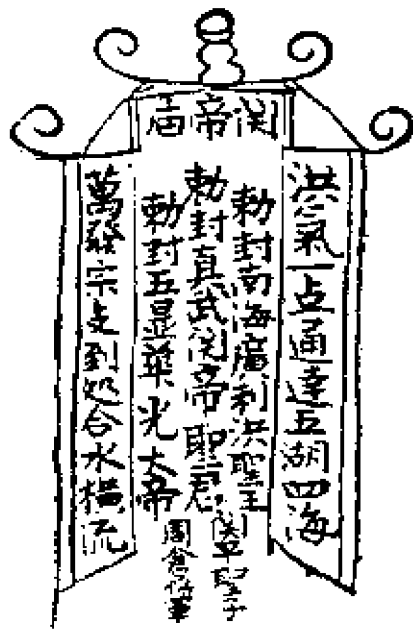 関帝庙
洪氣一点通達五湖四海
勅封南海廣利洪聖王
勅封真武関帝聖君
勅封五显華光大帝
関平
周倉
萬 宗 到处合水橫流